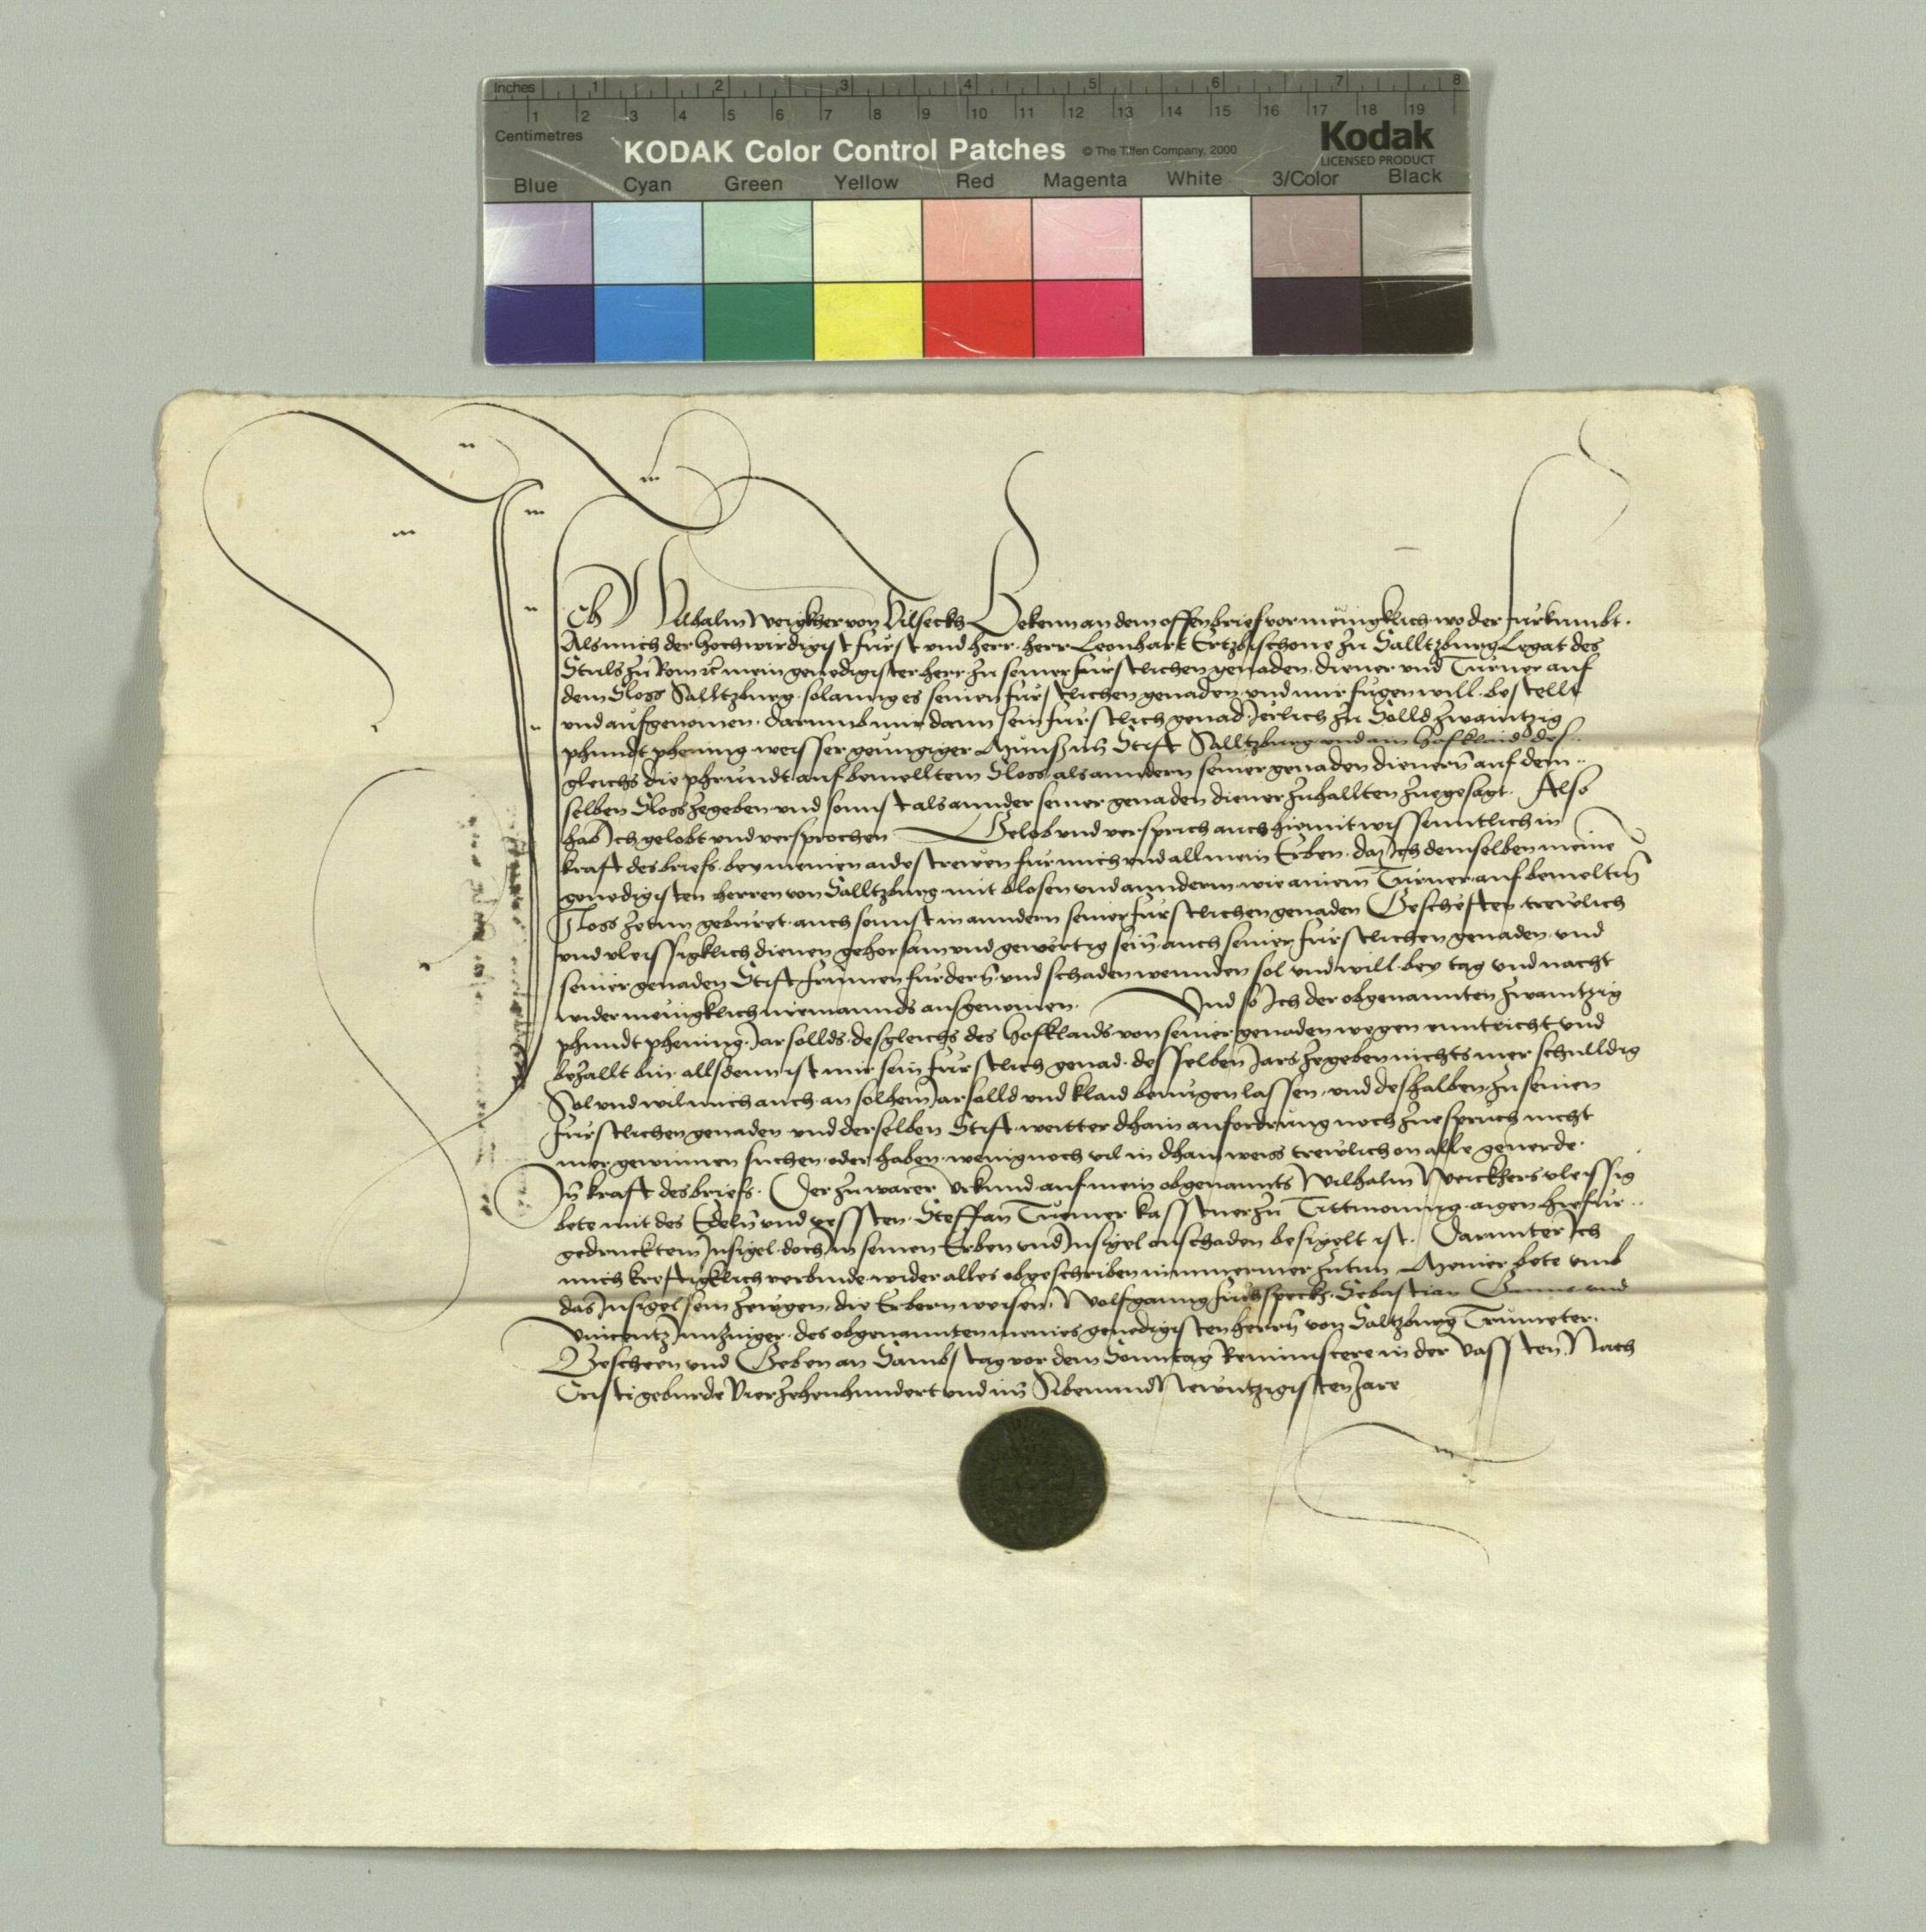 Inches 1 2 3 4 5 6 7 8
1 2 3 4 5 6 7 8 9 10 11 12 13 14 15 16 17 18 19
Centimetres
KODAK Color Control Patches © The Tiffen Company, 2000 Kodak
LICENSED PRODUCT
Blue Cyan Green Yellow Red Magenta White 3/Color Black
Ich Wilhalm von Vilseckh Bekenn an dem offen brief vor menigklich wo der furkumbt.
Als mich der Hochwirdigist furst und herr. herr Leonhart Ertzbischove zu Salltzburg Legat des
Stuls zu Rom mein genedigister herr zu seiner furstlichen genaden. diener und Turner auf
dem Sloss Salltzburg. solanng es seinen furstlichen genaden und mir fugen will. bestellt
und aufgenomen. darumb mir dann sein furstlich genad. Jerlich zu Solld zwaintzig
phundt phening weisser genngiger Munss im Stift Salltzburg und ain Hofklaid des
gleichs die phrundt auf bemelltem Sloss als anndern seiner genaden dienern auf dem
selben Sloss zegeben und sonnst als annder seiner genaden diener zuhallten zuegesagt. Also
hab Ich gelobt und versprochen Gelob und versprich auch hiemit wissenntlich in
kraft des briefs. bey meinen aides trewen fur mich und all mein Erben. daz Ich demselben meine
genedigisten herren von Salltzburg. mit blosen und anderm. wie ainem Turner auf bemeltm
Sloss zetun geburet. auch sonnst in anndern seiner furstlichen genaden Gescheften. trewlich
und vleissigklich dienen gehorsam und gewertig sein. auch seiner furstlichen genaden. und
seiner genaden Stift frumen furdern und schaden wennden sol und will. bey tag und nacht
wider menigklich niemannds ausgenomen. Und so Ich der obgenannten zwaintzig
phundt phening. Jarsollds. desgleichs des Hofklaids von seiner genaden wegen enntricht und
bezallt bin. allsdenn ist mir sein furstlich genad. desselben Jars zegeben nichts mer schulldig
Sol und wil mich auch an solhem Jarsolld und klaid benugen lassen. und deshalben zu seinen
furstlichen genaden und derselben Stift. weitter dhain anfordrung noch zuespruch nicht
mer gewinnen suchen. oder haben. wenig noch vil in dhain weis trewlich on alle geverde.
In kraft des briefs. Der zu warer Urkund auf mein obgenannts Wilhalm vleissig
bete mit des Edeln und vessten. Steffan kasstner zu Tittmoning. aigen hiefur
gedrucktem Insigel. doch im seinen Erben und Insigel on schaden besigelt ist. Darunter Ich
mich kreftigklich verbinde wider alles obgeschriben nimmermer zutun Meiner bete umb
das Insigel sein zewgen. die Erbern weisen. Wolfganng Sebastian und
Vincentz des obgenannten meines genedigisten herrn von Saltzburg Trumeter.
Gescheen und Geben an Sambstag vor dem Sonntag Reminiscere in der vassten. Nach
Cristi geburde Vierzehenhundert und im Sibenund Newntzigisten Jare